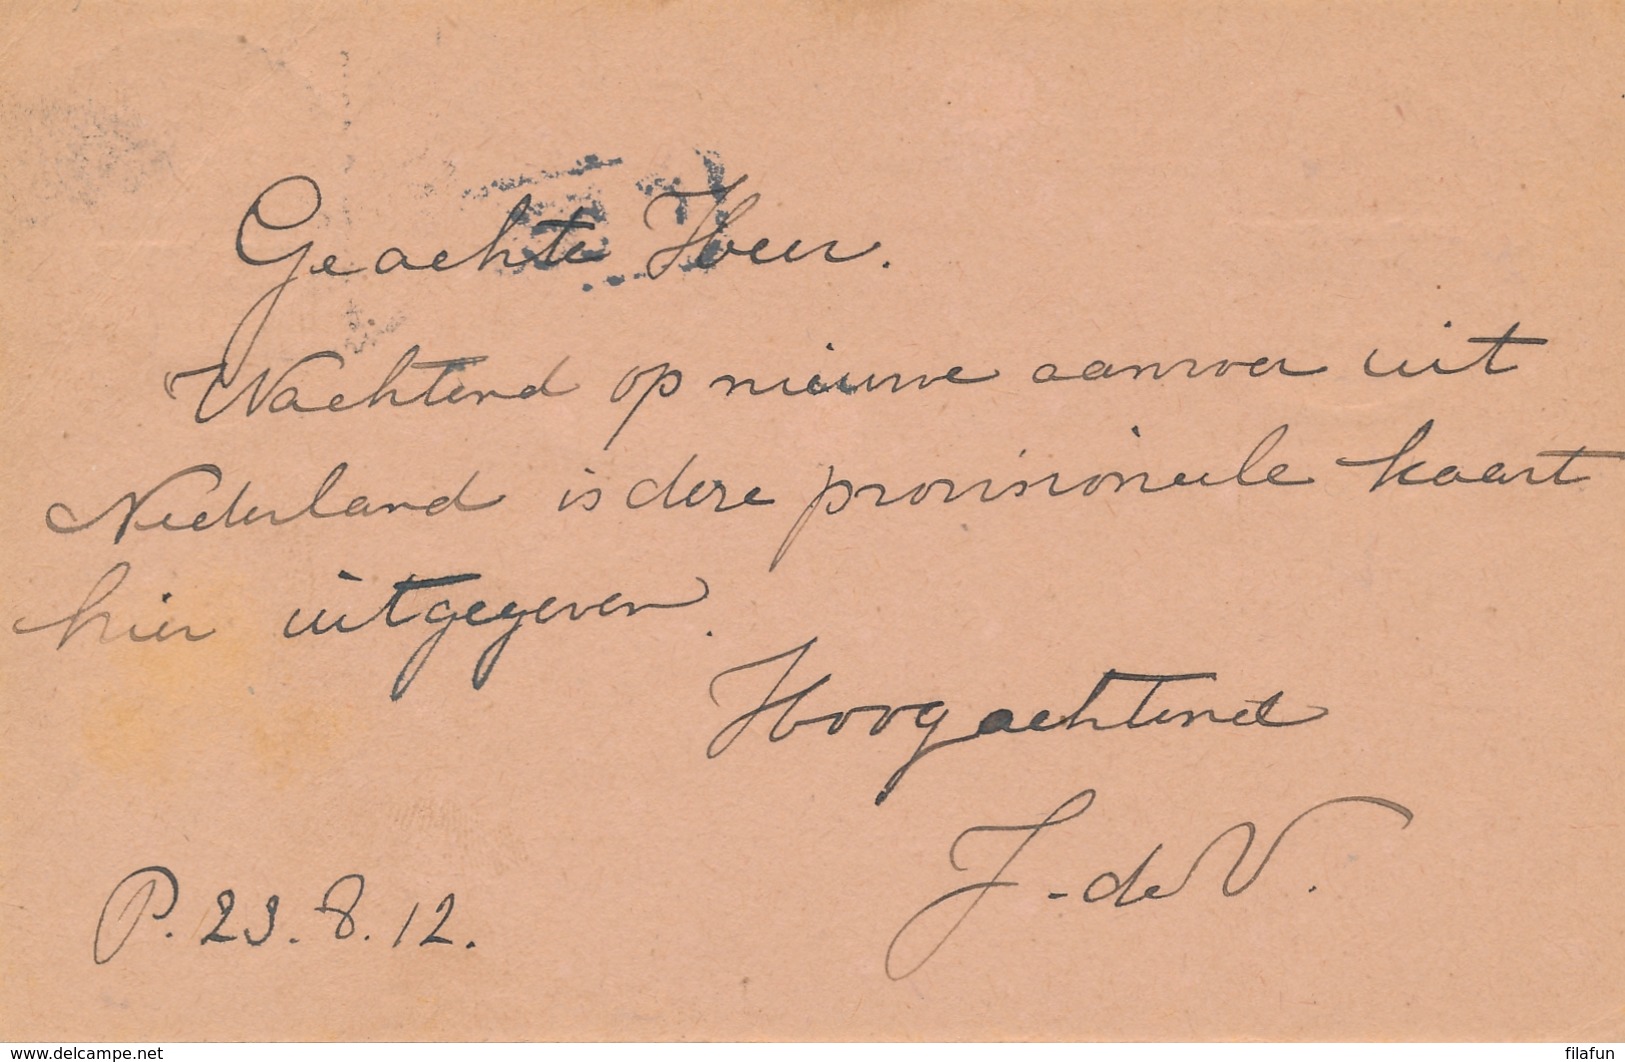 Geachte Heer.
Wachtend op nieuwe aanvoer uit
Nederland is deze provisioneele kaart
hier uitgegeven.
Hoogachtend
J. de V.
P. 23.8.12.
www.delcampe.net
filafun